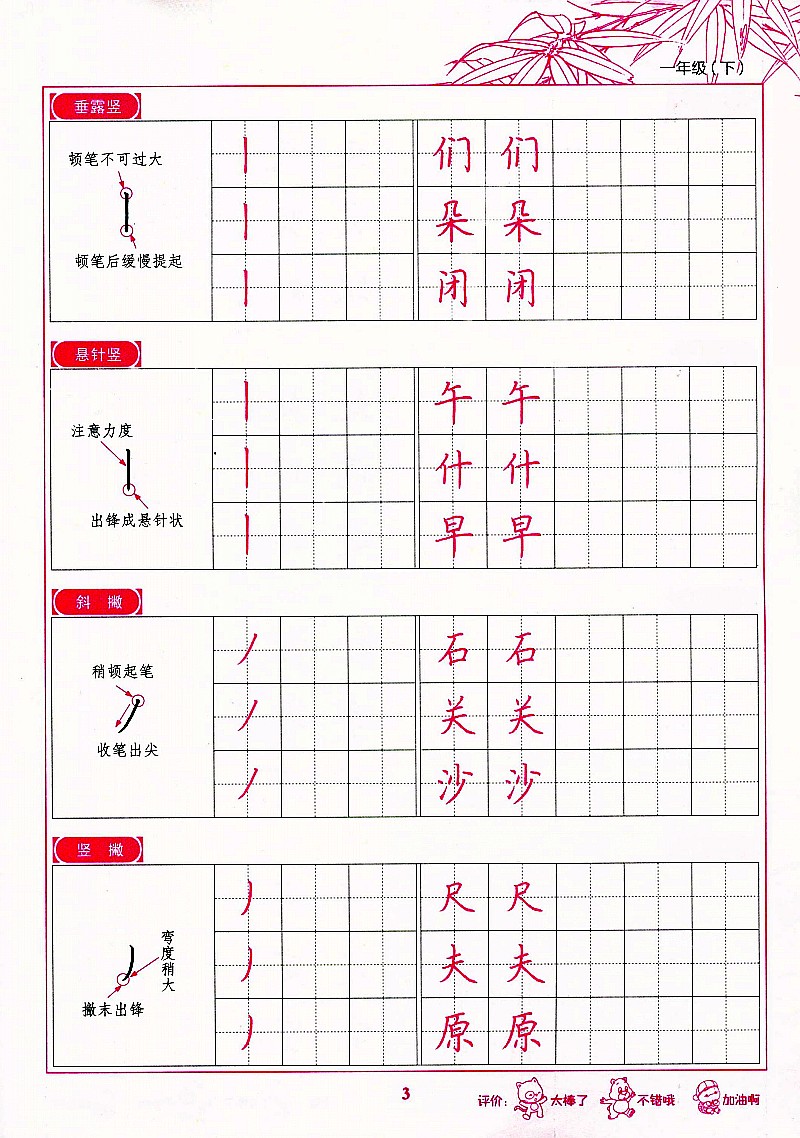 一年级（下）
垂露竖
顿笔不可过大
顿笔后缓慢提起
们 们
朵 朵
闭 闭
悬针竖
注意力度
出锋成悬针状
午 午
什 什
早 早
斜 撇
稍顿起笔
收笔出尖
石 石
关 关
沙 沙
竖 撇
弯度稍大
撇末出锋
尺 尺
夫 夫
原 原
3
评价： 太棒了 不错哦 加油啊